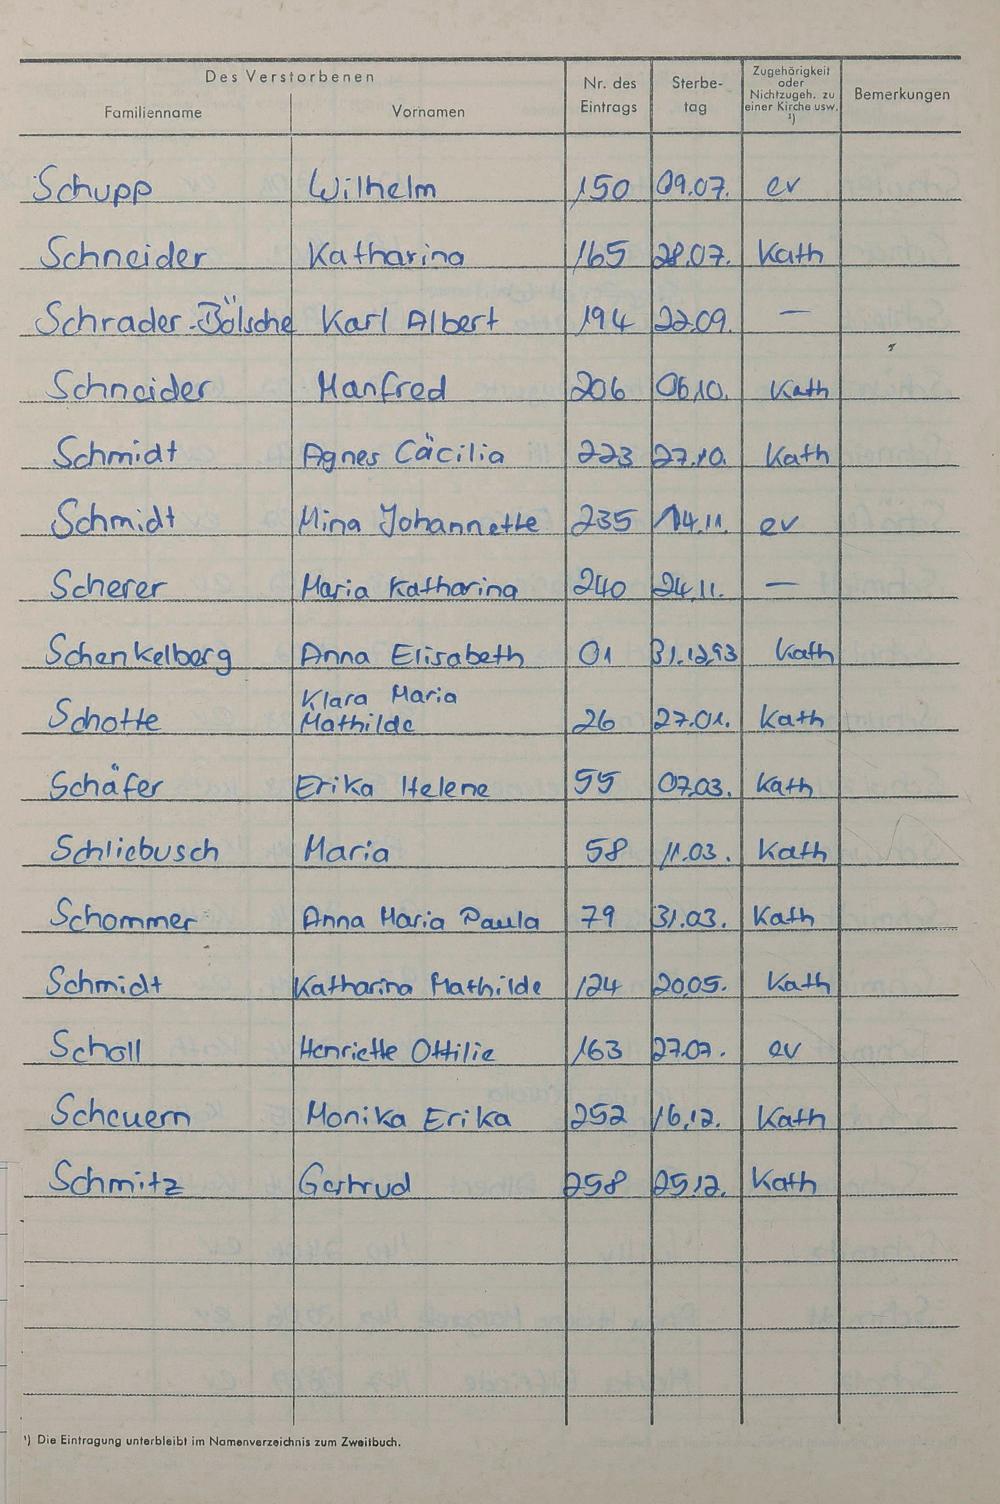 Des Verstorbenen
Familienname Vornamen Nr. des Eintrags Sterbe-tag Zugehörigkeit oder Nichtzugeh. zu einer Kirche usw. ¹) Bemerkungen
Schupp Wilhelm 150 09.07. ev
Schneider Katharina 165 28.07. Kath
Schrader-Bölsche Karl Albert 194 22.09. —
Schneider Manfred 206 06.10. Kath
Schmidt Agnes Cäcilia 223 27.10. Kath
Schmidt Mina Johannette 235 14.11. ev
Scherer Maria Katharina 240 24.11. —
Schenkelberg Anna Elisabeth 01 31.12.93 Kath
Schotte Klara Maria Mathilde 26 27.01. Kath
Schäfer Erika Helene 55 07.03. Kath
Schliebusch Maria 58 11.03. Kath
Schommer Anna Maria Paula 79 31.03. Kath
Schmidt Katharina Mathilde 124 20.05. Kath
Scholl Henriette Ottilie 163 27.07. ev
Scheuern Monika Erika 252 16.12. Kath
Schmitz Gertrud 258 25.12. Kath
¹) Die Eintragung unterbleibt im Namenverzeichnis zum Zweitbuch.